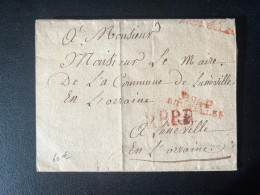 A Monsieur
Monsieur Le Maire
De La Commune de Luneville
En Lorraine
P.P.P.P.
A Luneville
En Lorraine